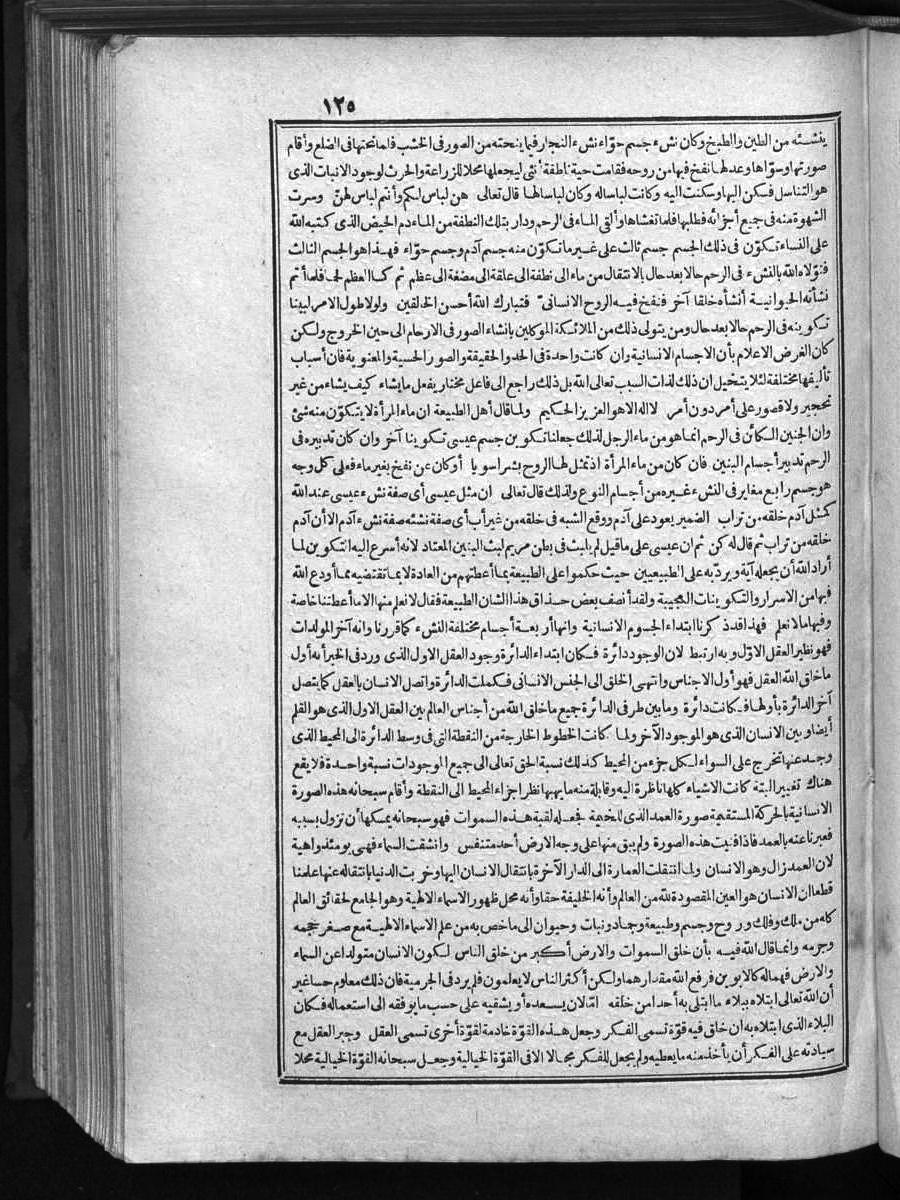 ١٢٥
ينشئه من الطين والطبخ وكان نشء جسم حوّاء نشء النجار فيما ينحته من الصور فى الخشب فلما نحتها فى الضلع وأقام
صورتها وسوّاها وعدلها نفخ فيها من روحه فقامت حية ناطقة أنثى ليجعلها محلا للزراعة والحرث لوجود الانبات الذى
هو التناسل فسكن اليها وسكنت اليه وكانت لباسا له وكان لباسا لها قال تعالى هن لباس لكم وأنتم لباس لهنّ وسرت
الشهوة منه فى جميع أجزائه فطلبها فلما تغشاها وألقى الماء فى الرحم ودار بتلك النطفة من الماء دم الحيض الذى كتبه الله
على النساء تكوّن فى ذلك الجسم جسم ثالث على غير ما تكوّن منه جسم آدم وجسم حوّاء فهذا هو الجسم الثالث
فتولاه الله بالنشء فى الرحم حالا بعد حال بالانتقال من ماء الى نطفة الى علقة الى مضغة الى عظم ثم كسا العظم لحما فلما أتم
نشأته الحيوانية أنشأه خلقا آخر فنفخ فيه الروح الانسانىّ فتبارك الله أحسن الخالقين ولولا طول الامر لبينا
تكوينه فى الرحم حالا بعد حال ومن يتولى ذلك من الملائكة الموكلين بانشاء الصور فى الارحام الى حين الخروج ولكن
كان الغرض الاعلام بأن الاجسام الانسانية وان كانت واحدة فى الحد والحقيقة والصور الحسية والمعنوية فان أسباب
تأليفها مختلفة لئلا يتخيل ان ذلك لذات السبب تعالى الله بل ذلك راجع الى فاعل مختار يفعل ما يشاء كيف يشاء من غير
تحجير ولا قصور على أمر دون أمر لا اله الا هو العزيز الحكيم ولما قال أهل الطبيعة ان ماء المرأة لا يتكوّن منه شئ
وان الجنين الكائن فى الرحم انما هو من ماء الرجل لذلك جعلنا تكوين جسم عيسى تكوينا آخر وان كان تدبيره فى
الرحم تدبير أجسام البنين فان كان من ماء المرأة اذ تمثل لها الروح بشرا سويا أو كان عن نفخ بغير ماء فعلى كل وجه
هو جسم رابع مغاير فى النشء غيره من أجسام النوع ولذلك قال تعالى ان مثل عيسى أى صفة نشء عيسى عند الله
كمثل آدم خلقه من تراب الضمير يعود على آدم ووقع الشبه فى خلقه من غير أب أى صفة نشئه صفة نشء آدم الا أن آدم
خلقه من تراب ثم قال له كن ثم ان عيسى على ما قيل لم يلبث فى بطن مريم لبث البنين المعتاد لانه أسرع اليه التكوين لما
أراد الله أن يجعله آية ويردّ به على الطبيعيين حيث حكموا على الطبيعة بما أعطتهم من العادة لا بما تقتضيه مما أودع الله
فيها من الاسرار والتكوينات العجيبة ولقد أنصف بعض حذاق هذا الشان الطبيعة فقال لا نعلم منها الا ما أعطتنا خاصة
وفيها ما لا نعلم فهذا قد ذكرنا ابتداء الجسوم الانسانية وانها أربعة أجسام مختلفة النشء كما قررنا وانه آخر المولدات
فهو نظير العقل الاوّل وبه ارتبط لان الوجود دائرة فكان ابتداء الدائرة وجود العقل الاول الذى ورد فى الخبر أنه أول
ما خلق الله العقل فهو أول الاجناس وانتهى الخلق الى الجنس الانسانى فكملت الدائرة واتصل الانسان بالعقل كما يتصل
آخر الدائرة بأولها فكانت دائرة وما بين طرفى الدائرة جميع ما خلق الله من أجناس العالم بين العقل الاول الذى هو القلم
أيضا وبين الانسان الذى هو الموجود الآخر ولما كانت الخطوط الخارجة من النقطة التى فى وسط الدائرة الى المحيط الذى
وجد عنها تخرج على السواء لكل جزء من المحيط كذلك نسبة الحق تعالى الى جميع الموجودات نسبة واحدة فلا يقع
هناك تغيير البتة كانت الاشياء كلها ناظرة اليه وقابلة منه ما يهبها نظر اجزاء المحيط الى النقطة وأقام سبحانه هذه الصورة
الانسانية بالحركة المستقيمة صورة العمد الذى للخيمة فجعله لقبة هذه السموات فهو سبحانه يمسكها أن تزول بسببه
فعبرنا عنه بالعمد فاذا فنيت هذه الصورة ولم يبق منها على وجه الارض أحد متنفس وانشقت السماء فهى يومئذ واهية
لان العمد زال وهو الانسان ولما انتقلت العمارة الى الدار الآخرة بانتقال الانسان اليها وخربت الدنيا بانتقاله عنها علمنا
قطعا ان الانسان هو العين المقصودة لله من العالم وأنه الخليفة حقا وأنه محل ظهور الاسماء الالهية وهو الجامع لحقائق العالم
كله من ملك وفلك وروح وجسم وطبيعة وجماد ونبات وحيوان الى ما خص به من علم الاسماء الالهية مع صغر حجمه
وجرمه وانما قال الله فيه بأن خلق السموات والارض أكبر من خلق الناس لكون الانسان متولدا عن السماء
والارض فهما له كالابوين فرفع الله مقدارهما ولكن أكثر الناس لا يعلمون فلم يرد فى الجرمية فان ذلك معلوم حسا غير
أن الله تعالى ابتلاه ببلاء ما ابتلى به أحدا من خلقه امّا لان يسعده أو يشقيه على حسب ما يوفقه الى استعماله فكان
البلاء الذى ابتلاه به ان خلق فيه قوّة تسمى الفكر وجعل هذه القوّة خادمة لقوّة أخرى تسمى العقل وجبر العقل مع
سيادته على الفكر أن يأخذ منه ما يعطيه ولم يجعل للفكر مجالا الا فى القوّة الخيالية وجعل سبحانه القوّة الخيالية محلا